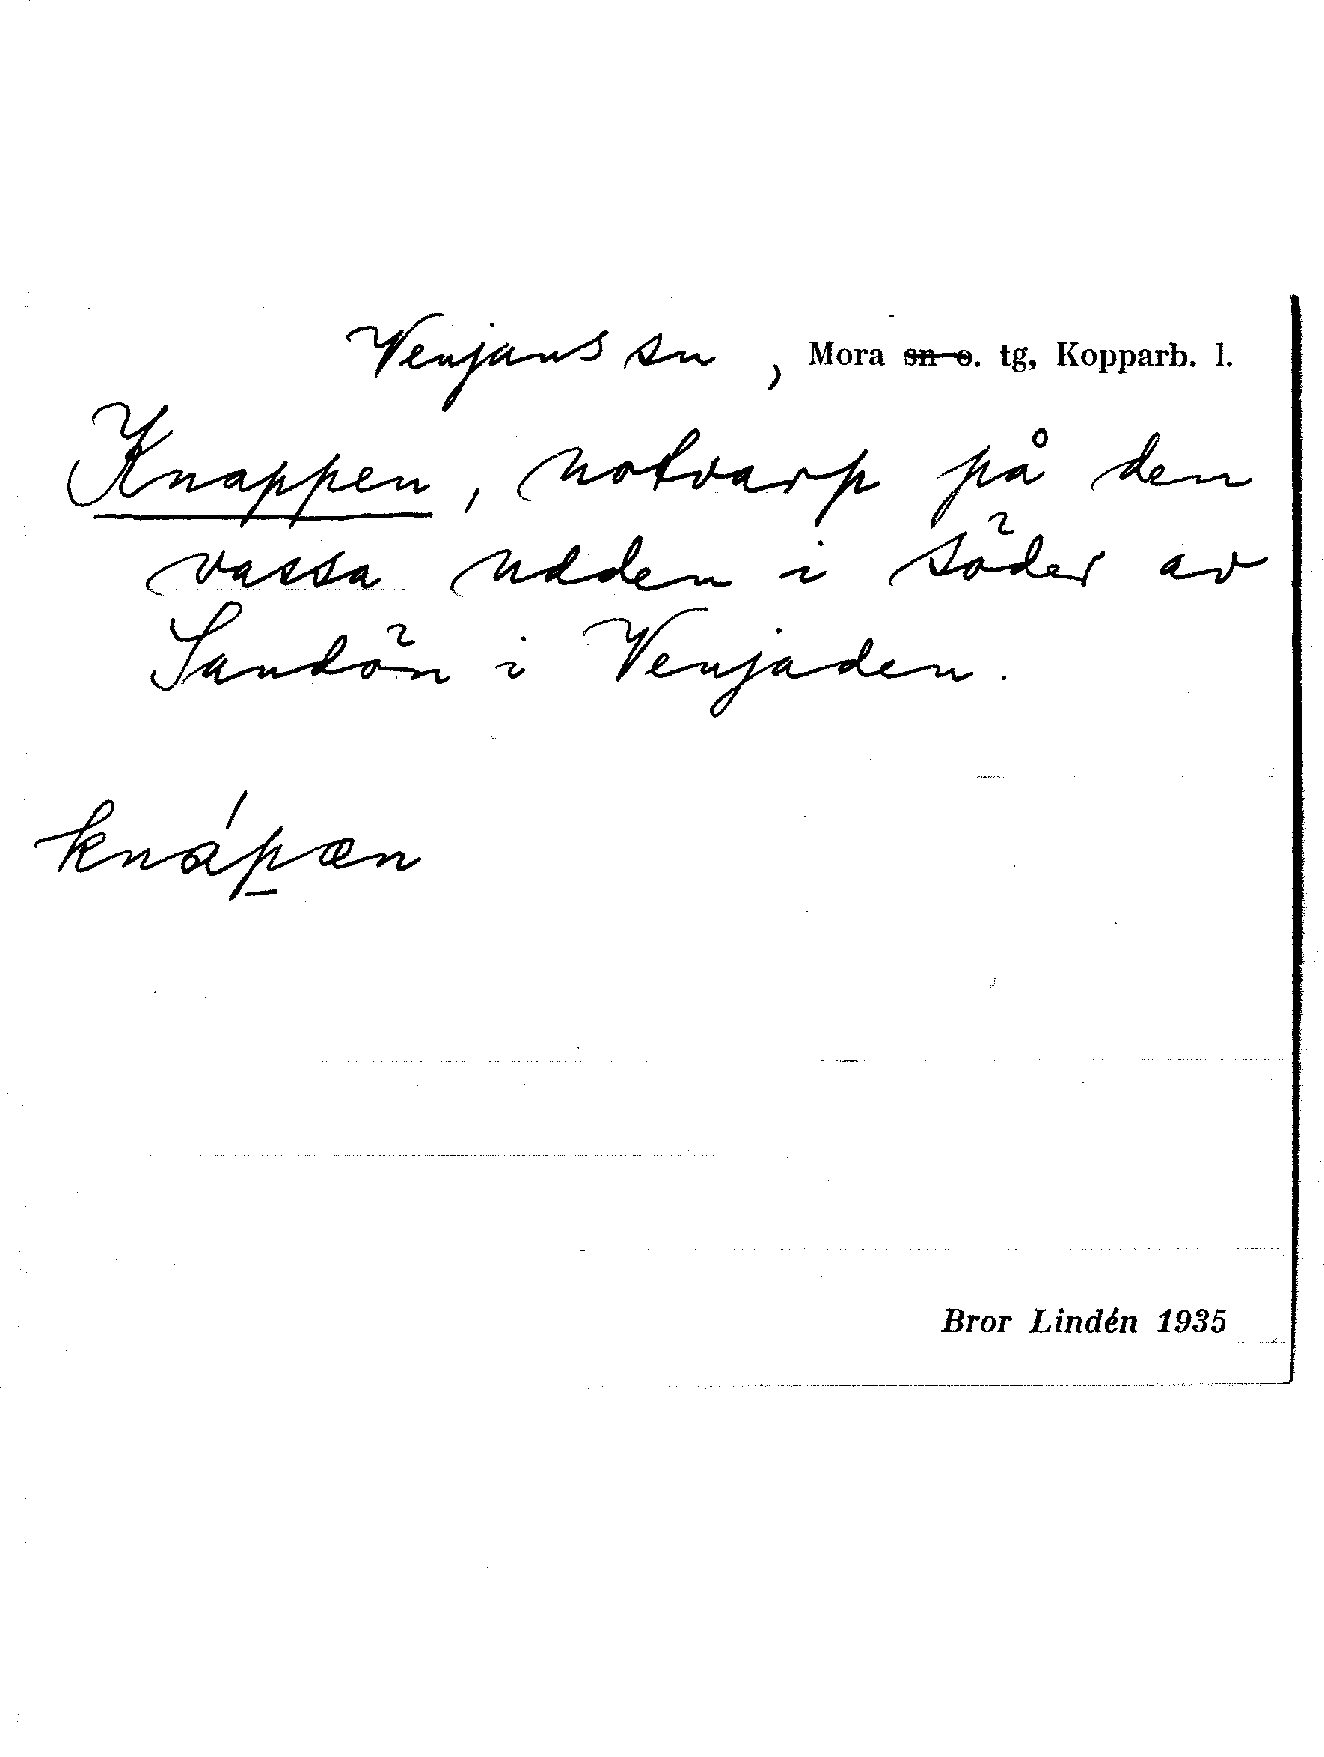 Venjans sn, Mora sn o. tg, Kopparb. l.
Knappen, notvarp på den
vassa udden i söder av
Sandön i Venjaden.
knápæn
Bror Lindén 1935